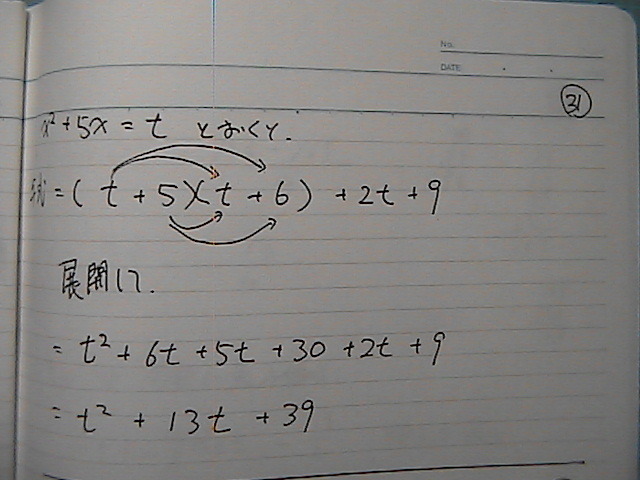 No.
DATE
31
x² + 5x = t とおくと.
与式 = (t + 5)(t + 6) + 2t + 9
展開して.
= t² + 6t + 5t + 30 + 2t + 9
= t² + 13t + 39